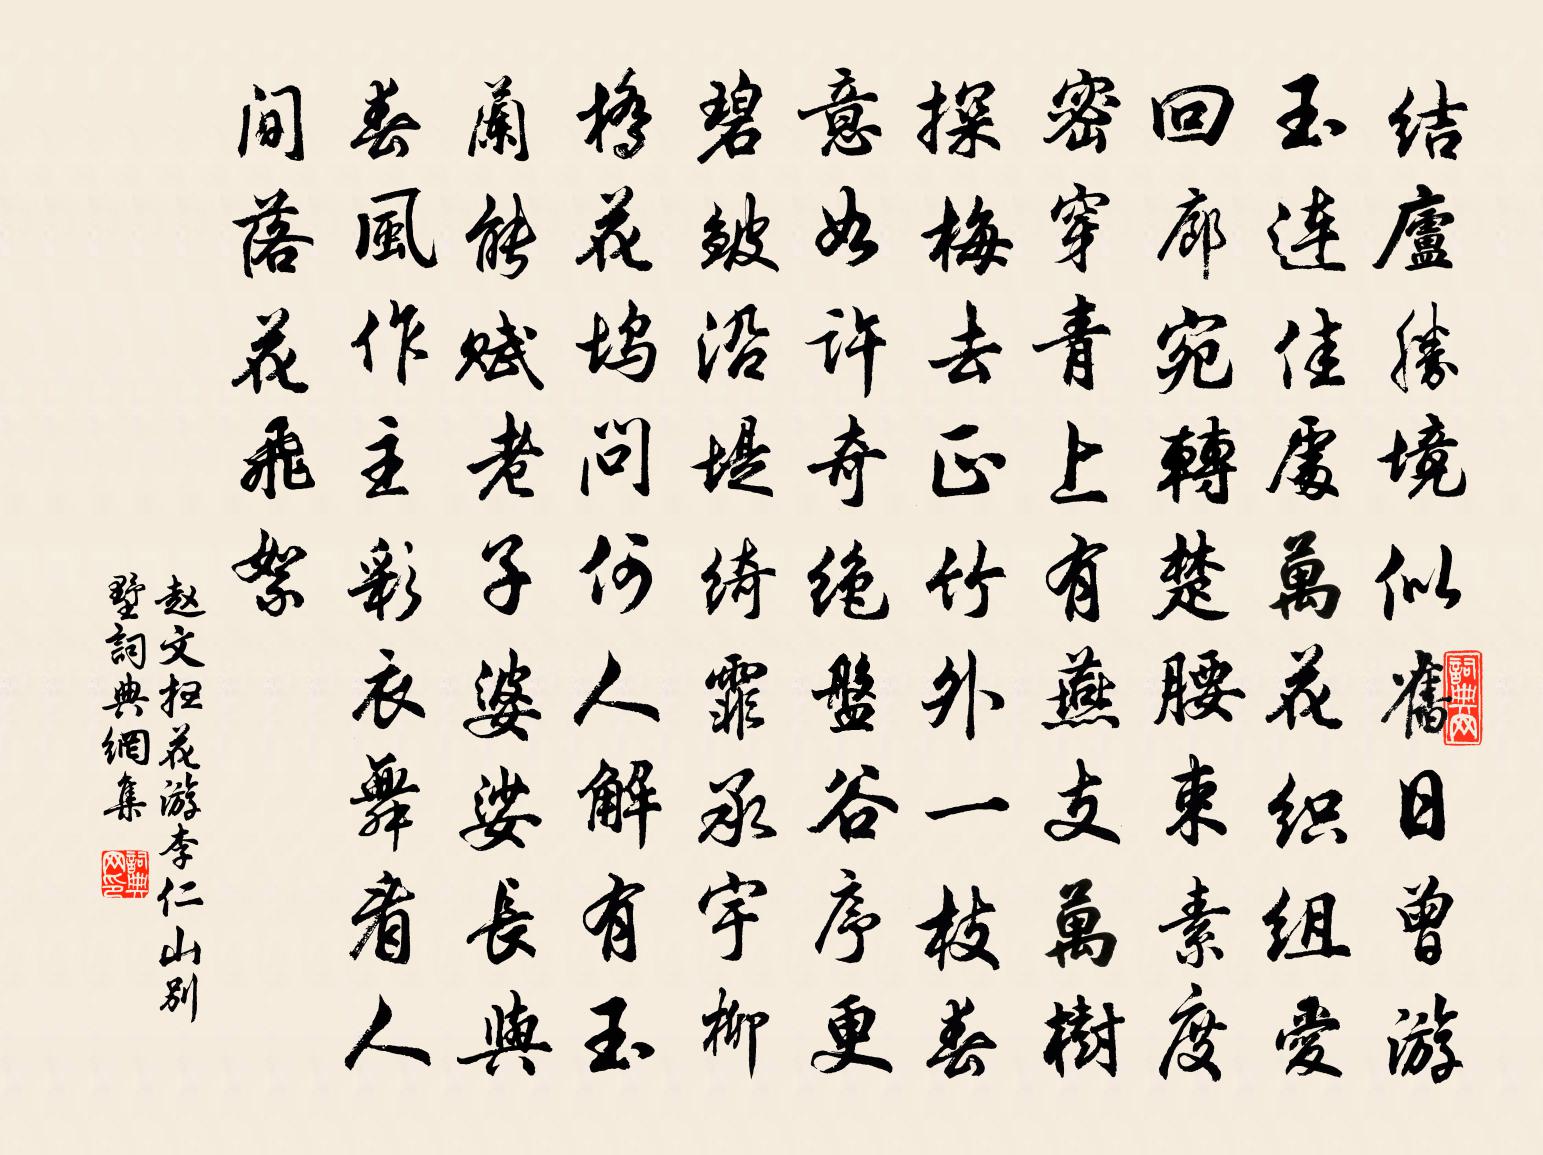 结廬勝境似舊日曾游
玉连佳處萬花织组愛
回廊宛轉楚腰束素度
密穿青上有燕支萬樹
探梅去正竹外一枝春
意如许奇绝盤谷序更
碧皴沿堤绮霏承宇柳
橋花坞问何人解有玉
蘭能赋老子婆娑長與
春風作主彩衣舞看人
间落花飛絮
赵文扫花游李仁山别
墅詞典網集
詞典网
詞典网印